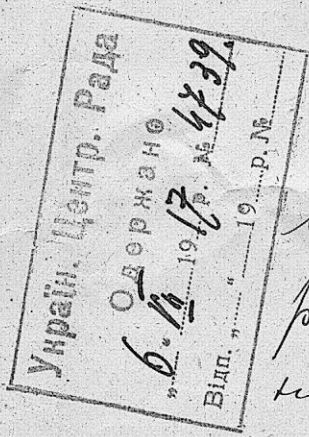 Україн. Центр. Рада
Одержано
„6“ VII 1917 р. № 4739
Відп. „......“ ........ 19.....р. №